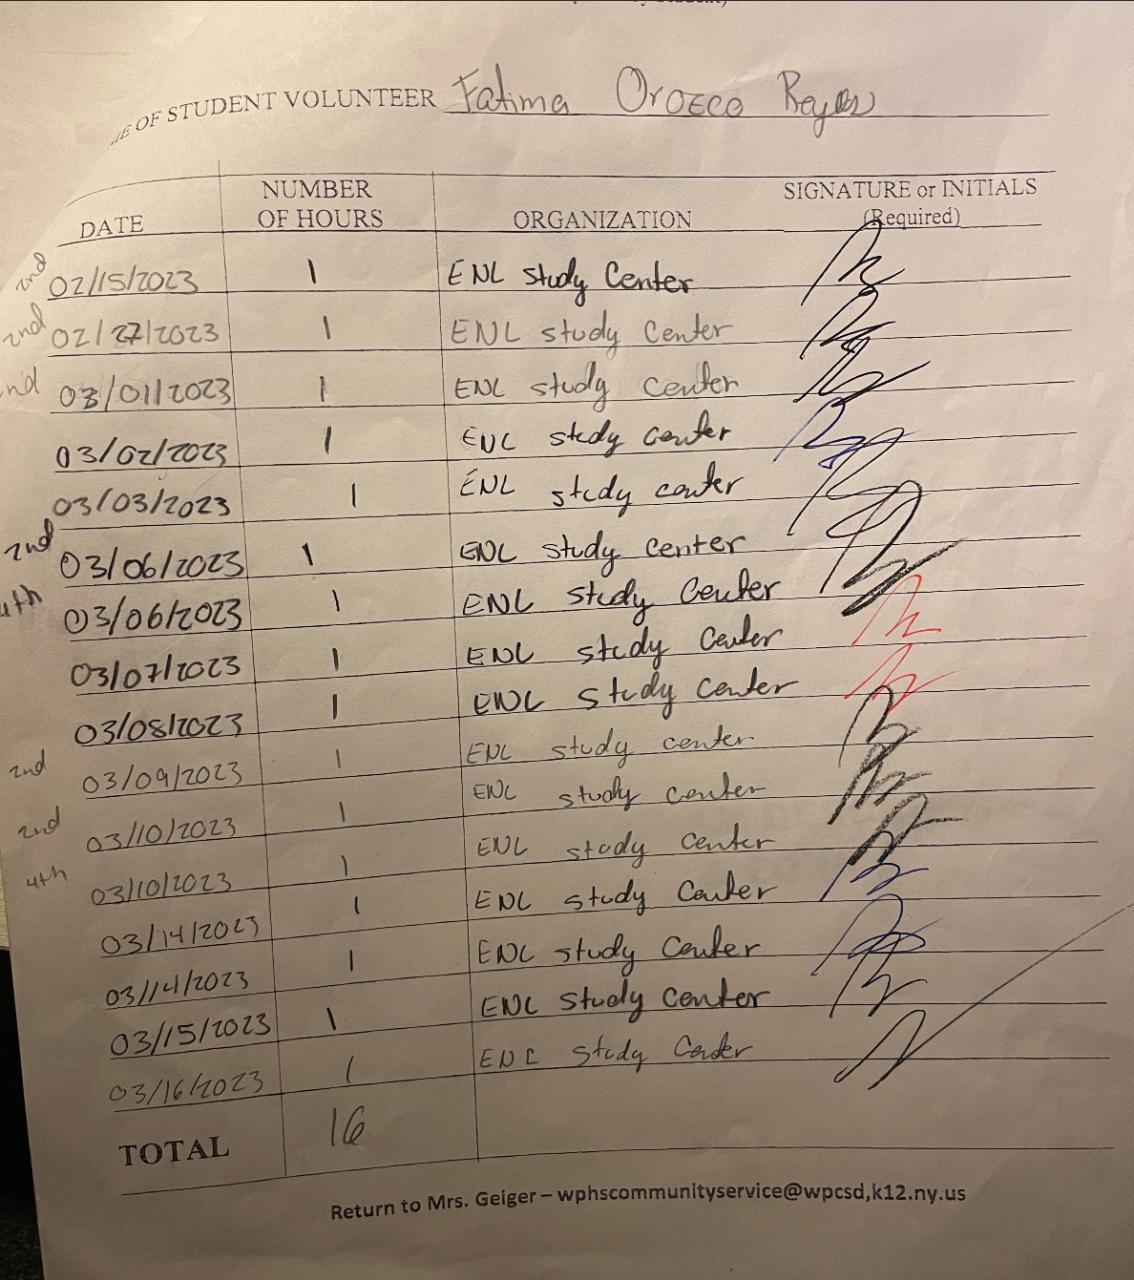 OF STUDENT VOLUNTEER Fatima Orozco Reyes
DATE NUMBER OF HOURS ORGANIZATION SIGNATURE or INITIALS (Required)
2nd 02/15/2023 1 ENL study Center
2nd 02/27/2023 1 ENL study center
2nd 03/01/2023 1 ENL study center
03/02/2023 1 ENL study center
03/03/2023 1 ENL study center
2nd 03/06/2023 1 ENL study center
4th 03/06/2023 1 ENL study Center
03/07/2023 1 ENL study Center
03/08/2023 1 ENL study Center
2nd 03/09/2023 1 ENL study center
2nd 03/10/2023 1 ENL study center
4th 03/10/2023 1 ENL study center
03/14/2023 1 ENL study Center
03/14/2023 1 ENL study Center
03/15/2023 1 ENL study Center
03/16/2023 1 ENL study Center
TOTAL 16
Return to Mrs. Geiger – wphscommunityservice@wpcsd,k12.ny.us